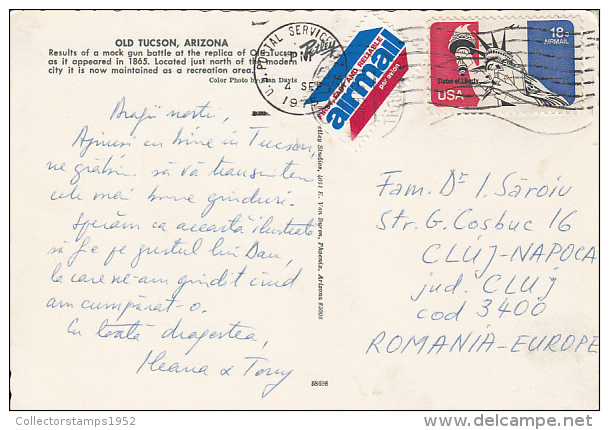 OLD TUCSON, ARIZONA
Results of a mock gun battle at the replica of Old Tucson
as it appeared in 1865. Located just north of the modern
city it is now maintained as a recreation area.
Color Photo by Stan Davis
U.S. POSTAL SERVICE
P
4 SEP
197
Petley
FIRST, FAST AND RELIABLE
airmail
par avion
18c
AIRMAIL
Statue of Liberty
USA
Dragii noștri,
Ajunși cu bine în Tucson,
ne grăbim să vă transmitem
cele mai bune gînduri.
Sperăm ca această ilustrată
să fie pe gustul lui Dan,
la care ne-am gîndit cînd
am cumpărat-o.
Cu toată dragostea,
Ileana & Tony
Petley Studios, 4051 E. Van Buren, Phoenix, Arizona 85008
Fam. Dr I. Săroiu
Str. G. Cosbuc 16
CLUJ-NAPOCA
jud. CLUJ
cod 3400
ROMANIA-EUROPE
58698
Collectorstamps1952
delcampe.net